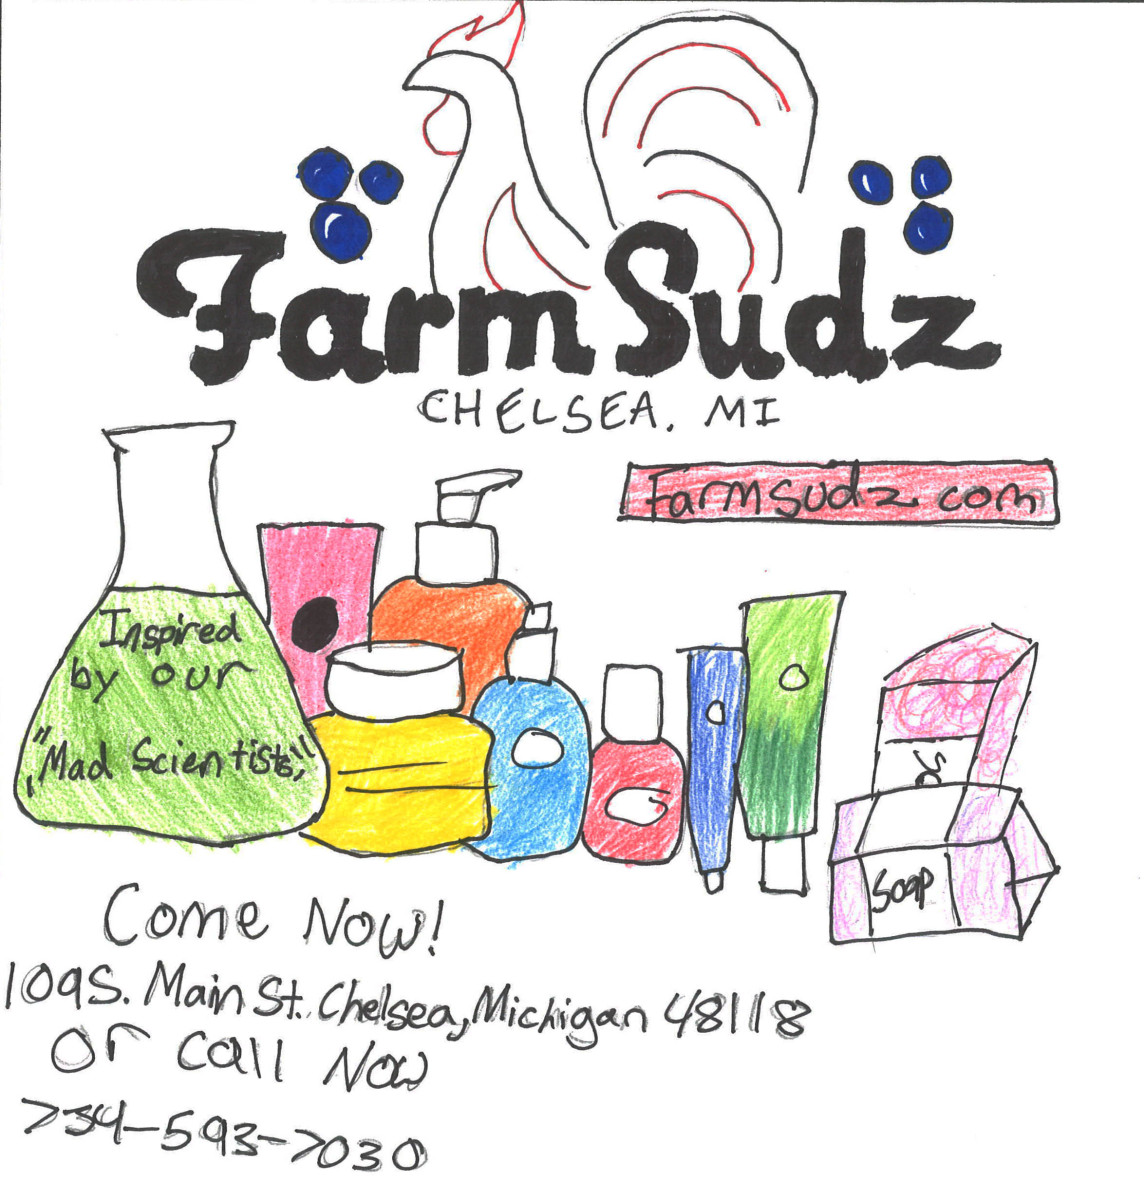 Farm Sudz
CHELSEA, MI
Farmsudz.com
Inspired
by our
"Mad Scientists,"
Soap
Come Now!
109 S. Main St. Chelsea, Michigan 48118
or call Now
734-593-7030